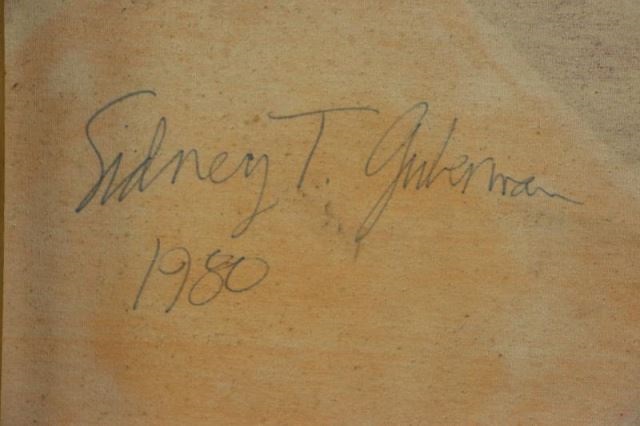 Sidney T. Guberman
1980